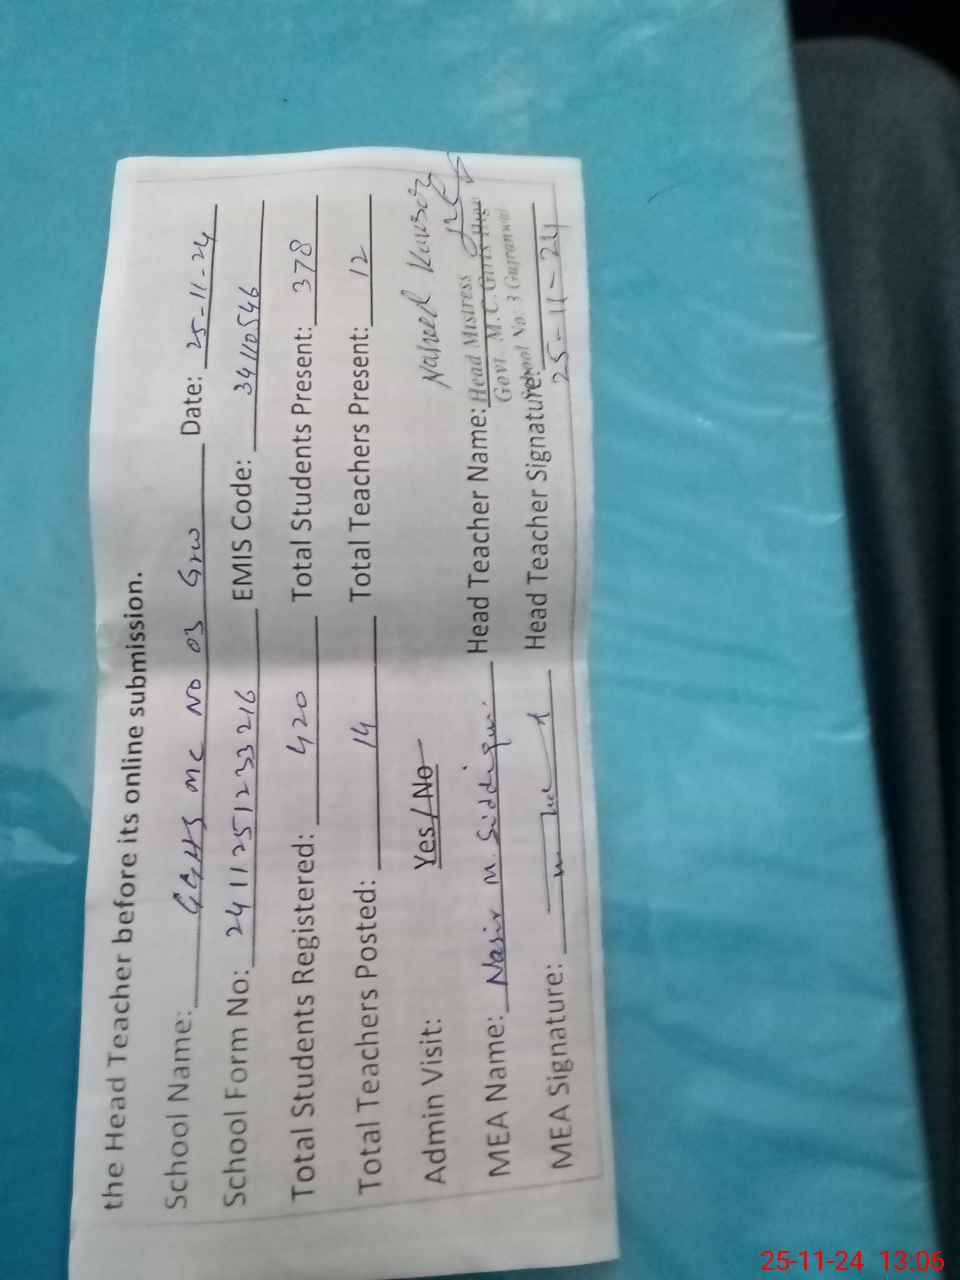 the Head Teacher before its online submission.
School Name: GGHS MC NO 03 Grw Date: 25-11-24
School Form No: 2411251233216 EMIS Code: 34110546
Total Students Registered: 420 Total Students Present: 378
Total Teachers Posted: 14 Total Teachers Present: 12
Admin Visit: Yes/No
Naheed Kausar
MEA Name: Nasir M. Siddiqui Head Teacher Name: Head Mistress
Govt. M.C. Girls High
School No: 3 Gujranwala
MEA Signature: Head Teacher Signature:
25-11-24
25-11-24 13:06